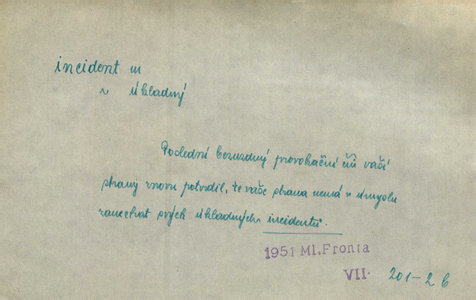 incident m
v úkladný
Poslední bezuzdný provokační čin vaší
strany znovu potvrdil, že vaše strana nemá v úmyslu
zanechat svých úkladných incidentů.
1951 Ml. Fronta
VII. 201-26